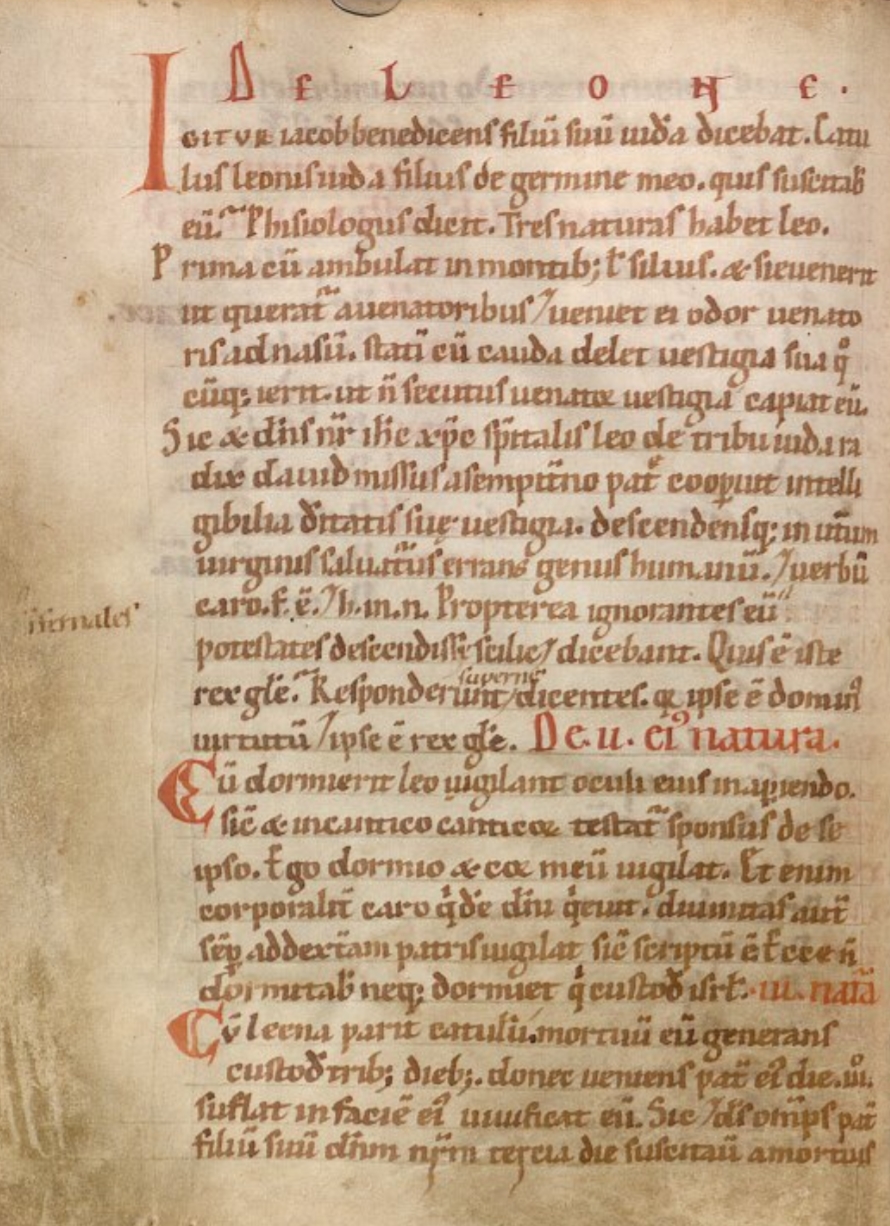 DE LEONE.
IGITUR iacob benedicens filiū suū iudā dicebat. Catu
lus leonis iuda filius de germine meo. quis suscitab̄
eū. Phisiologus dicit. Tres naturas habet leo.
Prima cū ambulat in montib; ł siluis. & si euenerit
ut querat̄ a uenatoribus / ueniet ei odor uenato
ris ad nasū. statī cū cauda delet uestigia sua q̊
cūq; ierit. ut n̄ secutus uenator uestigia capiat eū.
Sic & dn̄s nr̄ ih̄c xp̄c sp̄italis leo de tribu iuda ra
dix dauid missus a sempit̄no pat̄ cooꝑuit intelli
gibilia d̄itatis suę uestigia. descendensq; in ut̄um
uirginis saluat̄us errans genus humanū. / uerbū
caro. f. ē. / h. in. n. Propterea ignorantes eū
infernales
potestates descendisse scilic& / dicebant. Quis ē iste
supernę
rex glē. Responderunt / dicentes. q ipse ē dominꝰ
uirtutū / ipse ē rex glē. De .ii. eiꝰ natura.
Cū dormierit leo uigilant oculi eius in aꝑiendo.
sic̄ & in cantico canticoꝝ testat̄ sponsus de se
ipso. Ego dormio & cor meū uigilat. Et enim
corporalit̄ caro q̇dē dn̄i q̇euit. diuinitas aut̄
sēp ad dext̄am patris uigilat sic̄ scriptū ē Ecce n̄
dormitab̄ neq; dormiet q̇ custod̄ isrł. .iii. nat̄a
Cū leena parit catulū. mortuū eū generans
custod̄ trib; dieb;. donec ueniens pat̄ eiꝰ die .iii.
suflat in faciē eiꝰ uiuificat eū. Sic / ds̄ omp̄s pat̄
filiū suū dn̄m nr̄m tercia die suscitau̅ a mortuis